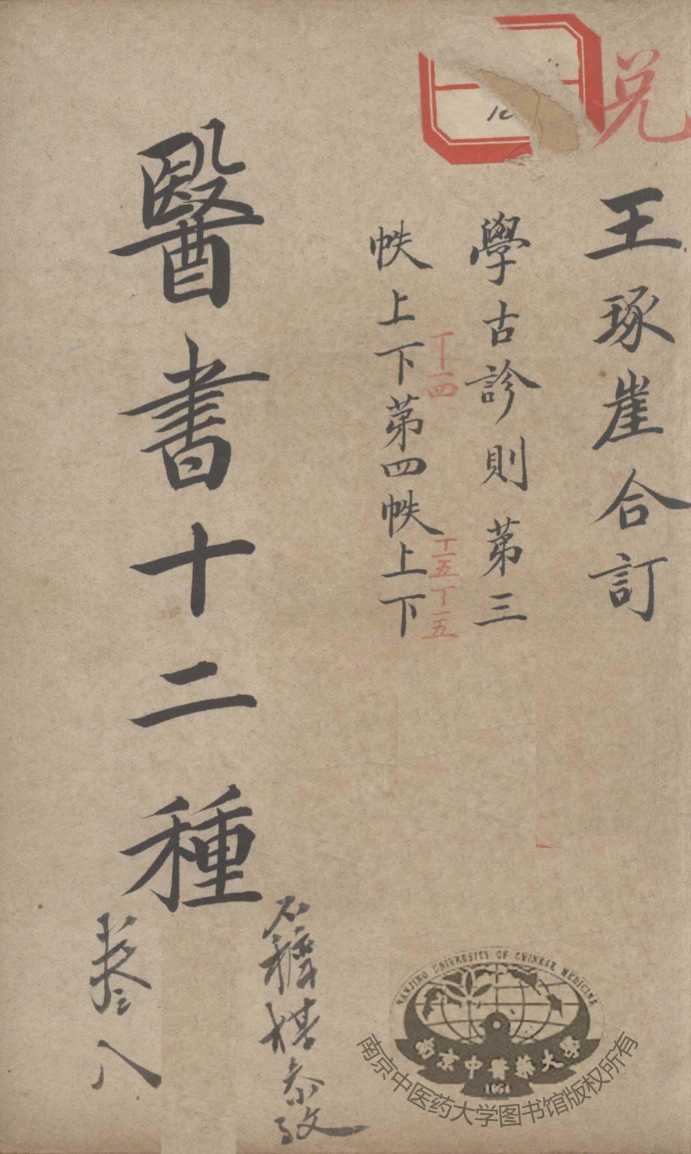 兑
王琢崖合訂
學古診則第三
帙上下第四帙上下
醫書十二種
八
NANJING UNIVERSITY OF CHINESE MEDICINE
南京中醫藥大學
1954
南京中医药大学图书馆版权所有